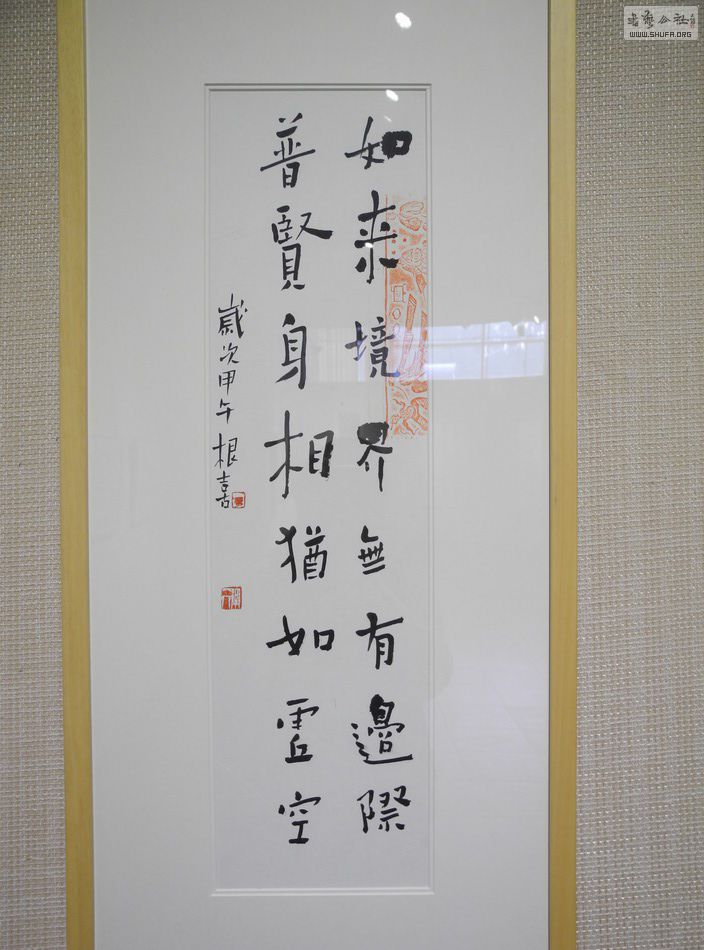 如来境界無有邊際
普賢身相猶如虛空
歲次甲午根喜
書藝公社
WWW.SHUFA.ORG